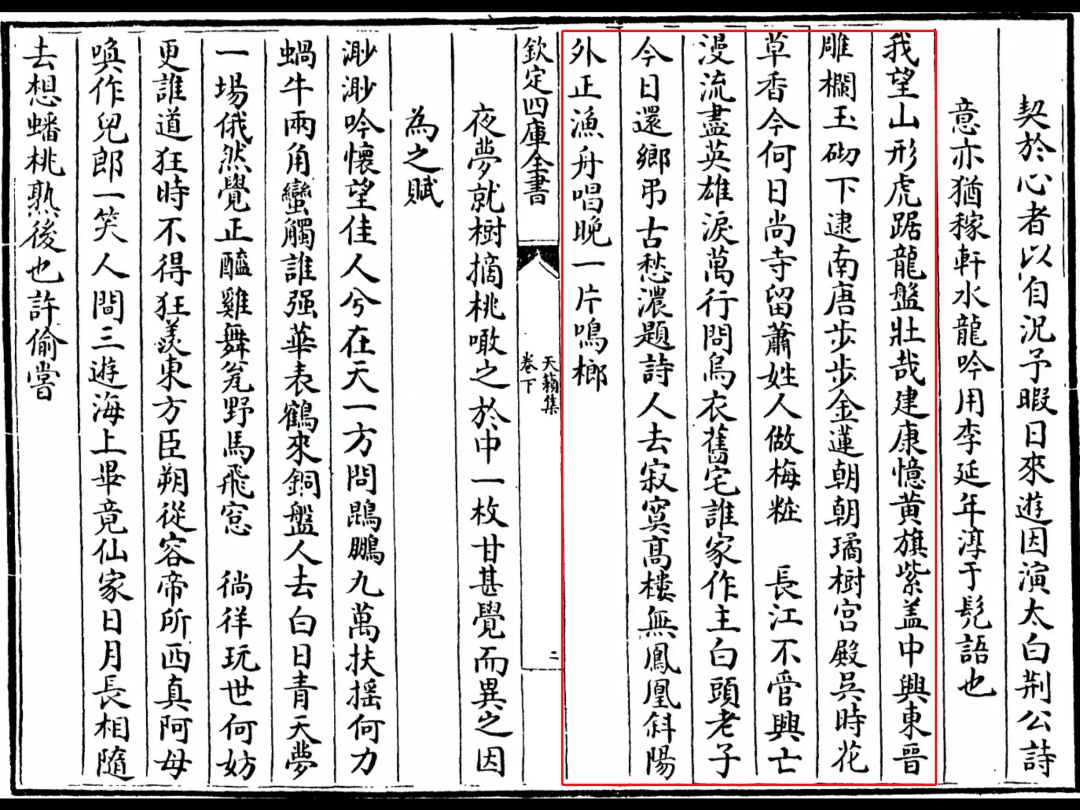 契於心者以自況予暇日來遊因演太白荆公詩
意亦猶稼軒水龍吟用李延年淳于髡語也
我望山形虎踞龍盤壯哉建康憶黄旗紫盖中興東晉
雕欄玉砌下逮南唐步步金蓮朝朝璚樹宫殿吳時花
草香今何日尚寺留蕭姓人做梅粧　長江不管興亡
漫流盡英雄淚萬行問烏衣舊宅誰家作主白頭老子
今日還鄉弔古愁濃題詩人去寂寞髙樓無鳳凰斜陽
外正漁舟唱晚一片鳴榔
欽定四庫全書
天籟集
卷下
二
夜夢就樹摘桃噉之於中一枚甘甚覺而異之因
為之賦
渺渺吟懷望佳人兮在天一方問鵾鵬九萬扶揺何力
蝸牛兩角蠻觸誰强華表鶴來銅盤人去白日青天夢
一場俄然覺正醯雞舞瓮野馬飛窓　徜徉玩世何妨
更誰道狂時不得狂羡東方臣朔從容帝所西真阿母
喚作兒郎一笑人間三遊海上畢竟仙家日月長相隨
去想蟠桃熟後也許偷嘗